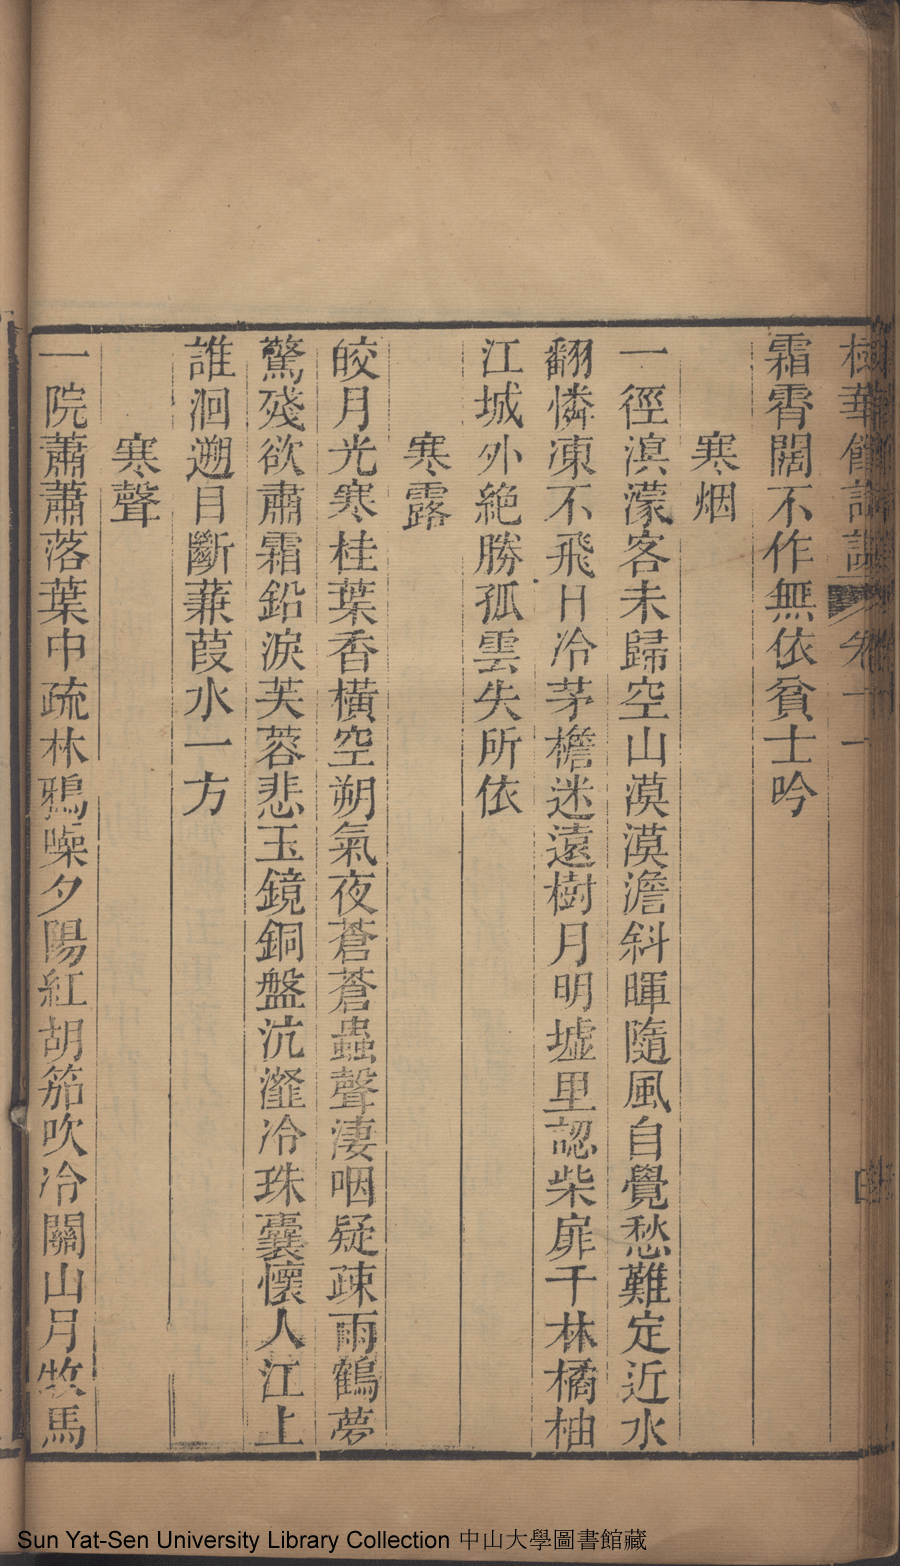 霜霄闊不作無依貧士吟
寒烟
一徑溟濛客未歸空山漠漠澹斜暉隨風自覺愁難定近水
翻憐凍不飛日冷茅檐迷遠樹月明墟里認柴扉千林橘柚
江城外絶勝孤雲失所依
寒露
皎月光寒桂葉香橫空朔氣夜蒼蒼蟲聲淒咽疑疎雨鶴夢
驚殘欲肅霜鉛淚芙蓉悲玉鏡銅盤沆瀣冷珠囊懷人江上
誰洄遡目斷蒹葭水一方
寒聲
一院蕭蕭落葉中疏林鴉噪夕陽紅胡笳吹冷關山月牧馬
Sun Yat-Sen University Library Collection 中山大學圖書館藏